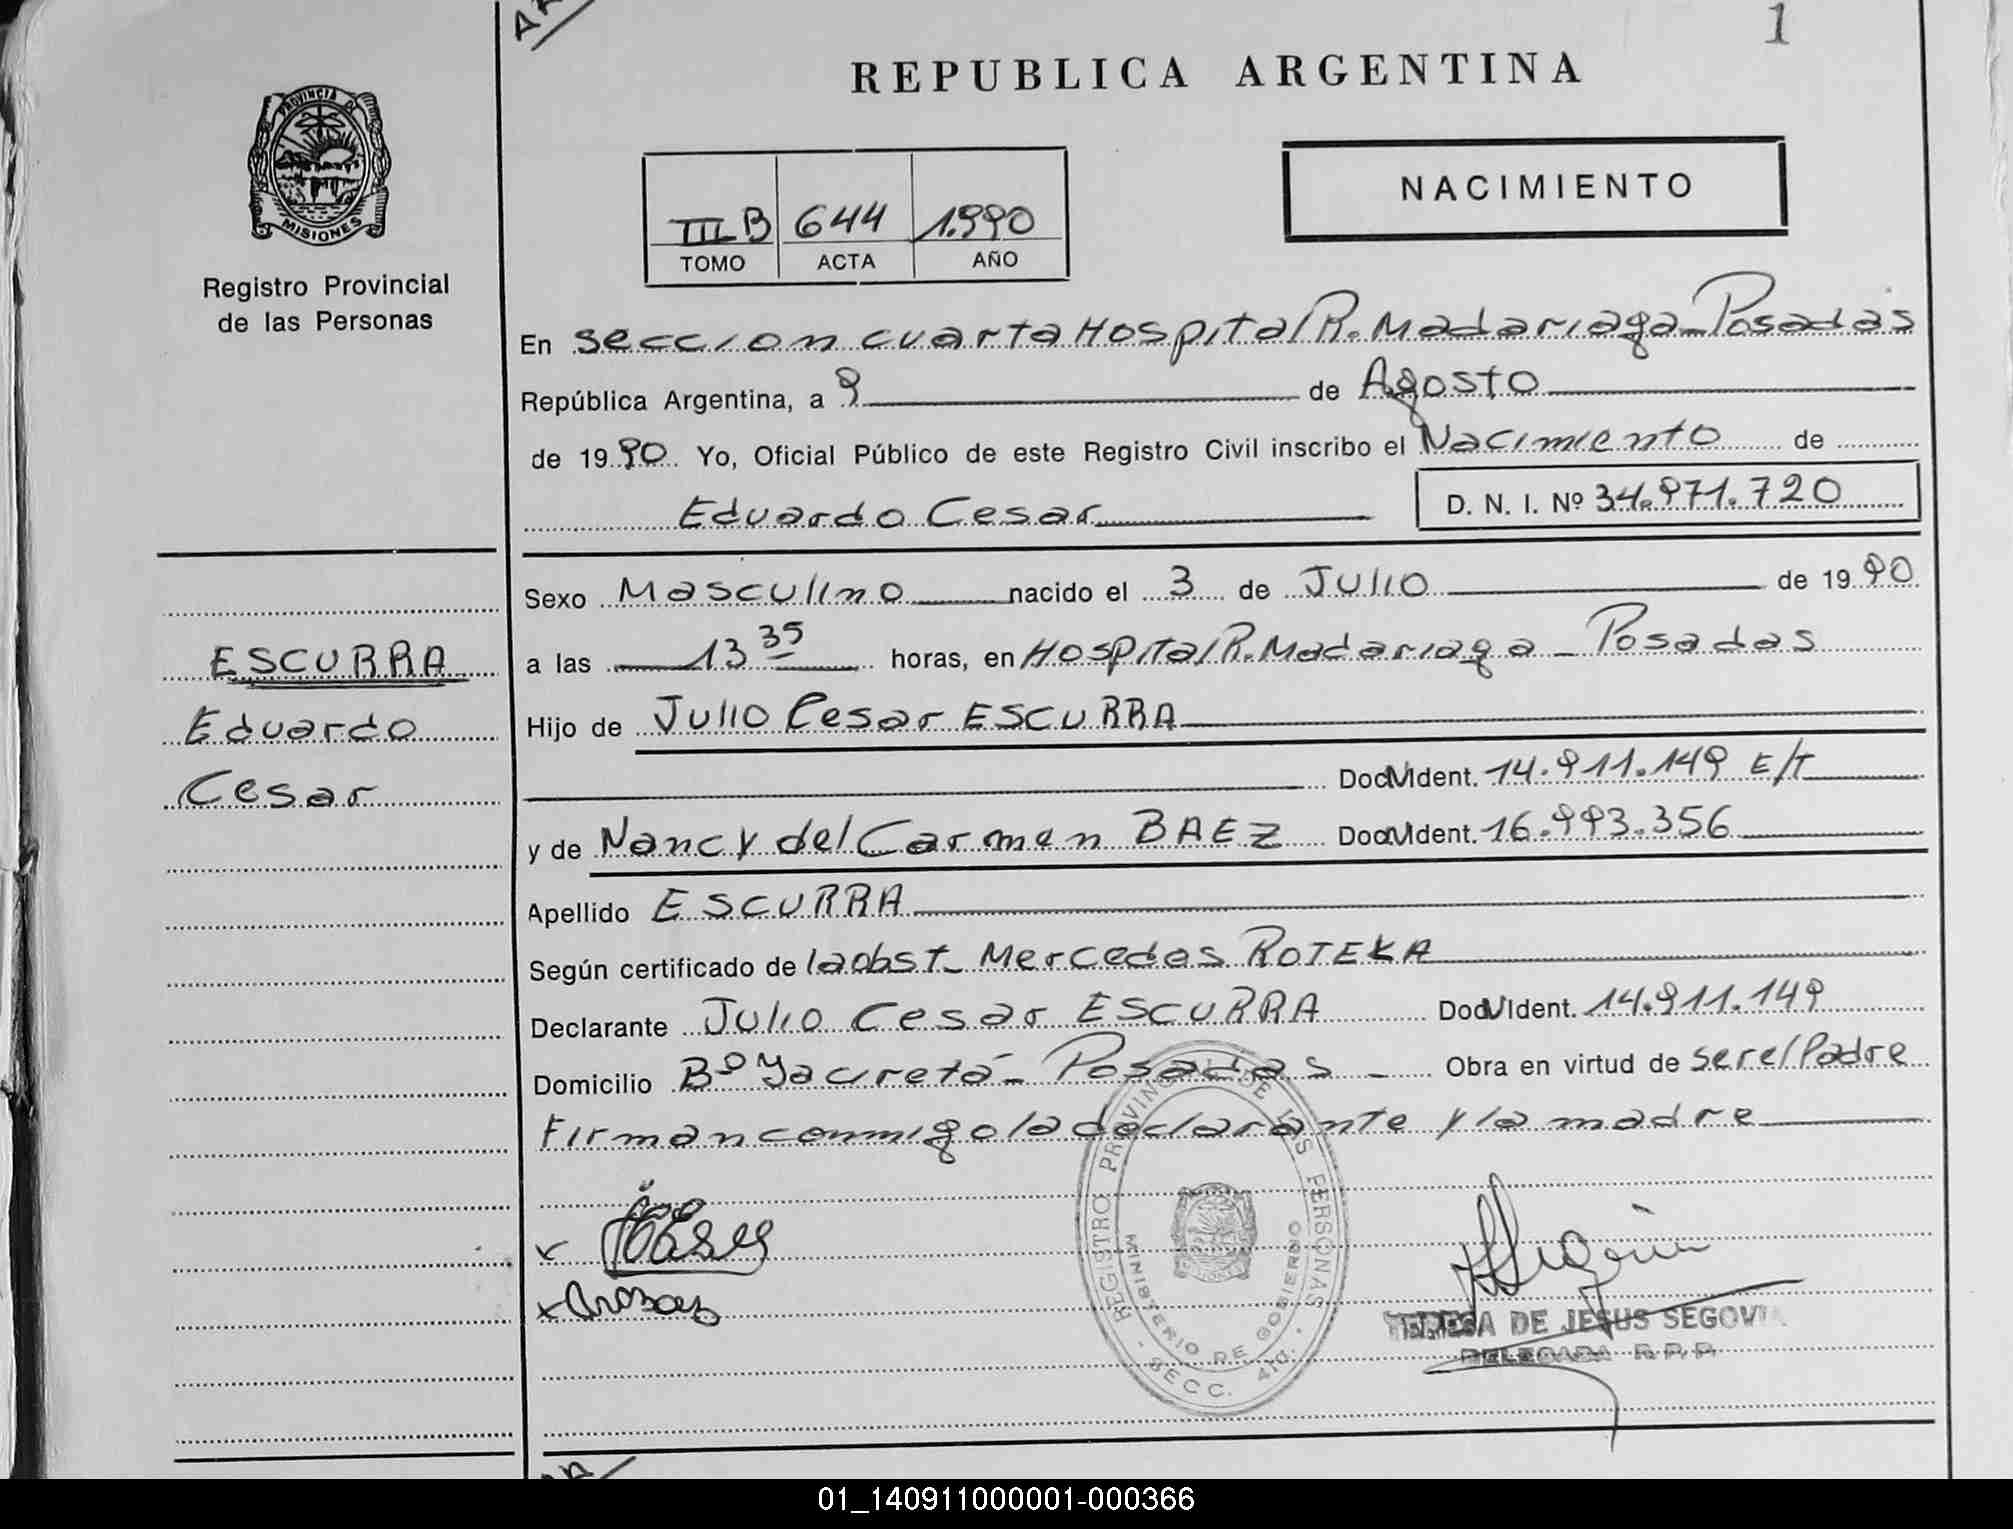 1
REPUBLICA ARGENTINA
PROVINCIA DE
MISIONES
NACIMIENTO
III B 644 1.990
TOMO ACTA AÑO
Registro Provincial
de las Personas
En Seccion cuarta Hospital R. Madariaga - Posadas
República Argentina, a 9 de Agosto
de 1990 Yo, Oficial Público de este Registro Civil inscribo el Nacimiento de
Eduardo Cesar D. N. I. Nº 34.971.720
Sexo Masculino nacido el 3 de Julio de 1990
ESCURRA
a las 13 35 horas, en Hospital R. Madariaga - Posadas
Eduardo
Hijo de Julio Cesar ESCURRA
Cesar
Doc. Ident. 14.911.149 E/T
y de Nancy del Carmen BAEZ Doc. Ident. 16.993.356
Apellido ESCURRA
Según certificado de la obst. Mercedes ROTEKA
Declarante Julio Cesar ESCURRA Doc. Ident. 14.911.149
Domicilio Bº Yacretá - Posadas - Obra en virtud de ser el Padre
Firman conmigo la declarante y la madre
REGISTRO PROVINCIAL DE LAS PERSONAS
MINISTERIO DE GOBIERNO
- SECC. 4ta. -
TERESA DE JESUS SEGOVIA
DELEGADA R. P. P.
01_140911000001-000366